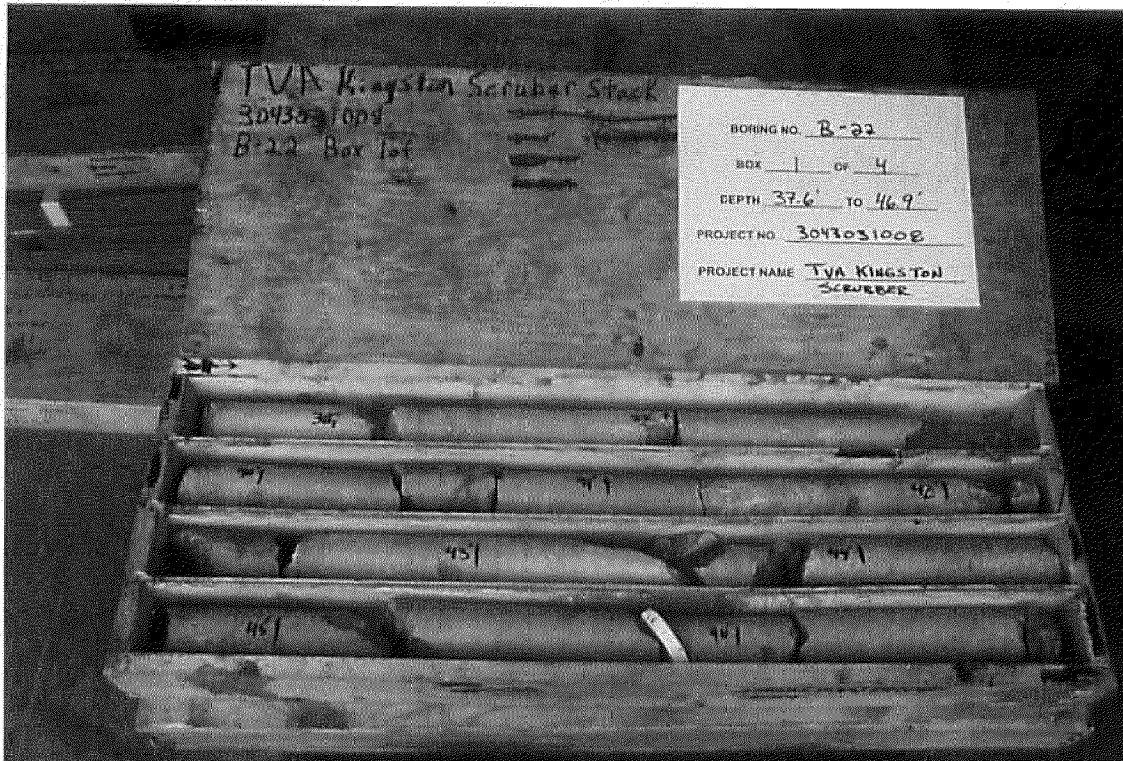 TVA Kingston Scruber Stack
B-22 Box 1of
BORING NO. B-22
BOX 1 OF 4
DEPTH 37.6' TO 46.9'
PROJECT NO. 3043031008
PROJECT NAME TVA KINGSTON
SCRUBBER
42
43
44
45